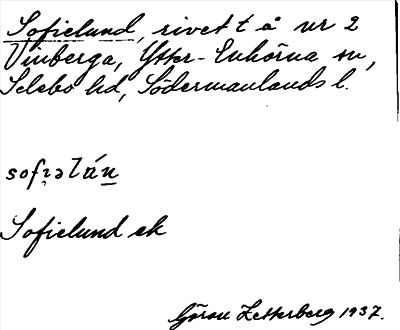 Sofielund, rivet t å ur 2
Vinberga, Ytter-Enhörna sn,
Selebo hd, Södermanlands l.
sofɪəlán
Sofielund ek
Göran Zetterberg 1937.